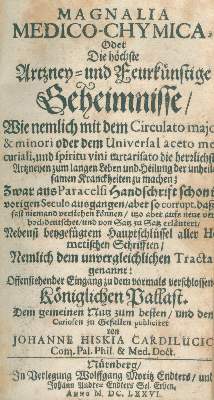 MAGNALIA
MEDICO-CHYMICA,
Oder
Die höchste
Artzney- und Feurkünstige
Geheimnisse/
Wie nemlich mit dem Circulato majo
& minori oder dem Universal aceto me
curiali, und spiritu vini tartarisato die herrlichste
Artzneyen zum langen Leben und Heilung der unheil-
samen Kranckheiten zu machen;
Zwar aus Paracelsi Handschrifft schon i
vorigen Seculo ausgangen/ aber so corrupt, daß
fast niemand verstehen können/ itzo aber aufs neue ve
hochdeutschet/ und von Satz zu Satz erläutert;
Nebenst beygefügtem Hauptschlüssel aller He
metischen Schrifften/
Nemlich dem unvergleichlichen Tracta
genannt:
Offenstehender Eingang zu dem vormals verschlossen
Königlichen Pallast.
Dem gemeinen Nutz zum besten/ und den
Curiosen zu Gefallen publiciret
von
JOHANNE HISKIA CARDILUCIO
Com. Pal. Phil. & Med. Doct.
Nürnberg/
In Verlegung Wolffgang Moritz Endters/ und
Johann Andreæ Endters Sel. Erben.
ANNO M. DC. LXXVI.